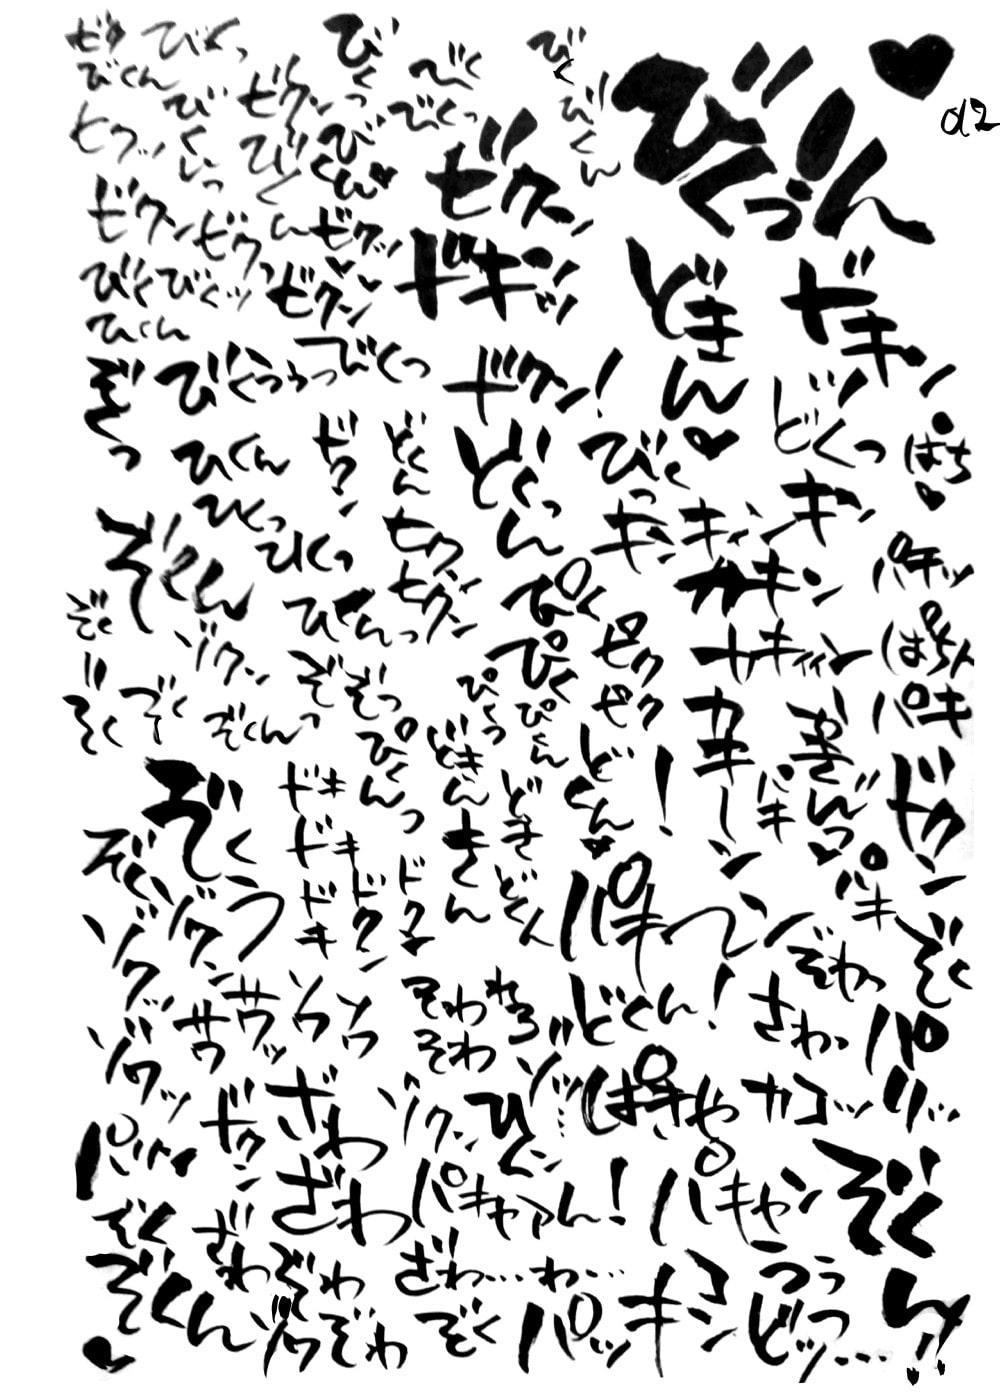 びくっ
びくっ
びく
びく
びくづん
α2
ビクッ
びくん
びくっ
ビクン
びくっ
びくん
ビクッ
びくっ
びくん
びくん
ビクーン
ビクン
ビクッ
ドキンッ
どきん
ドキン
びく
びくッ
ビクーン
びくん
ぞくっ
びくうぅっ
びくっ
ドクン!
どくっ
ぱち
ひくん
ドクン
どくん
どくっん
びくっ
キン
キィン
キン
ひくっ
ひくっ
ヒクン
ヒクン
ぞくん
カキン
パキッ
ぞく
ゾクン
ぴく
ぴく
ピク
ピク
カキィィン
ぱちん
パキ
ぞく
ぞく
ぞくんっ
ぞくっ
ぴくんっ
ぴくっ
ぴくん
どくん!
カキーン
パキ
ドクン
ぞくう
ドキ
ドキ
ドキ
どきん
どき
どくん
ドクン
パキーン
パキ
ぞく
ゾクン
ゾクッ
ぞわっ
ゾワッ
ザワッ
ゾワ
そわ
そわ
どくん!
さわっ
パリッ
ドクン
ざわ
ざわ
ゾクン
ゾッ…
ぱきゃ
カコッ
パキャァん!
パキャン
ぞくん!!
ぞく
ざわ
ぞわ
ざわ…わ…
ぞくん
ゾワ
ぞわ
ぞく
パッキン
コ
うぅ
どッ…